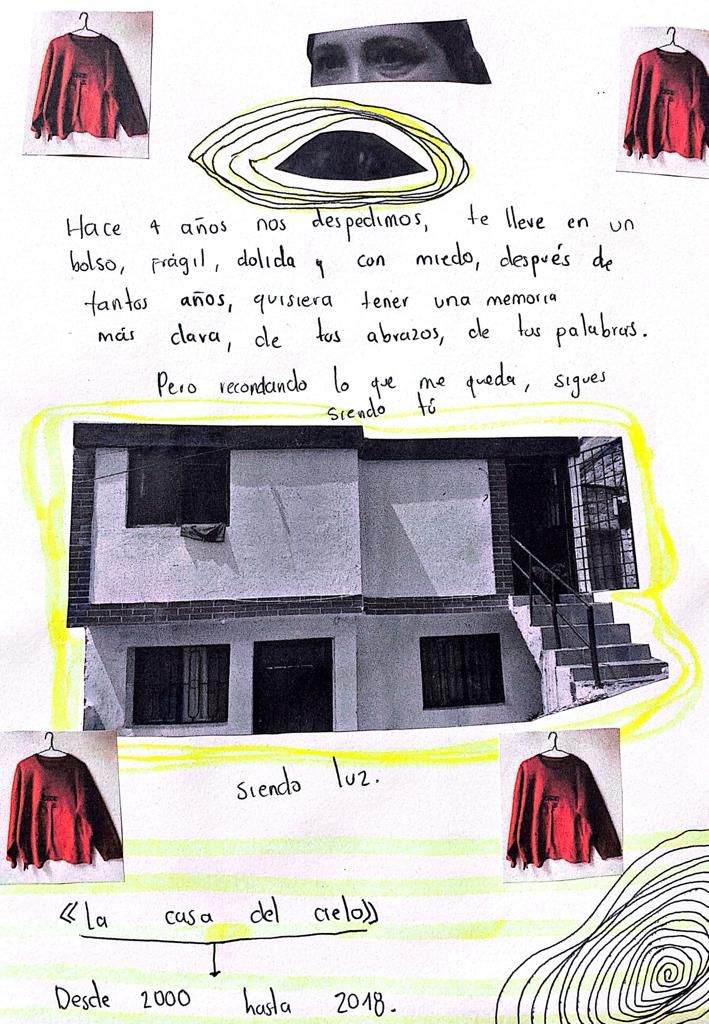 Hace 4 años nos despedimos, te lleve en un
bolso, frágil, dolida y con miedo, después de
tantos años, quisiera tener una memoria
más clara, de tus abrazos, de tus palabras.
Pero recordando lo que me queda, sigues
siendo tú
siendo luz.
«La casa del cielo»
Desde 2000 hasta 2018.